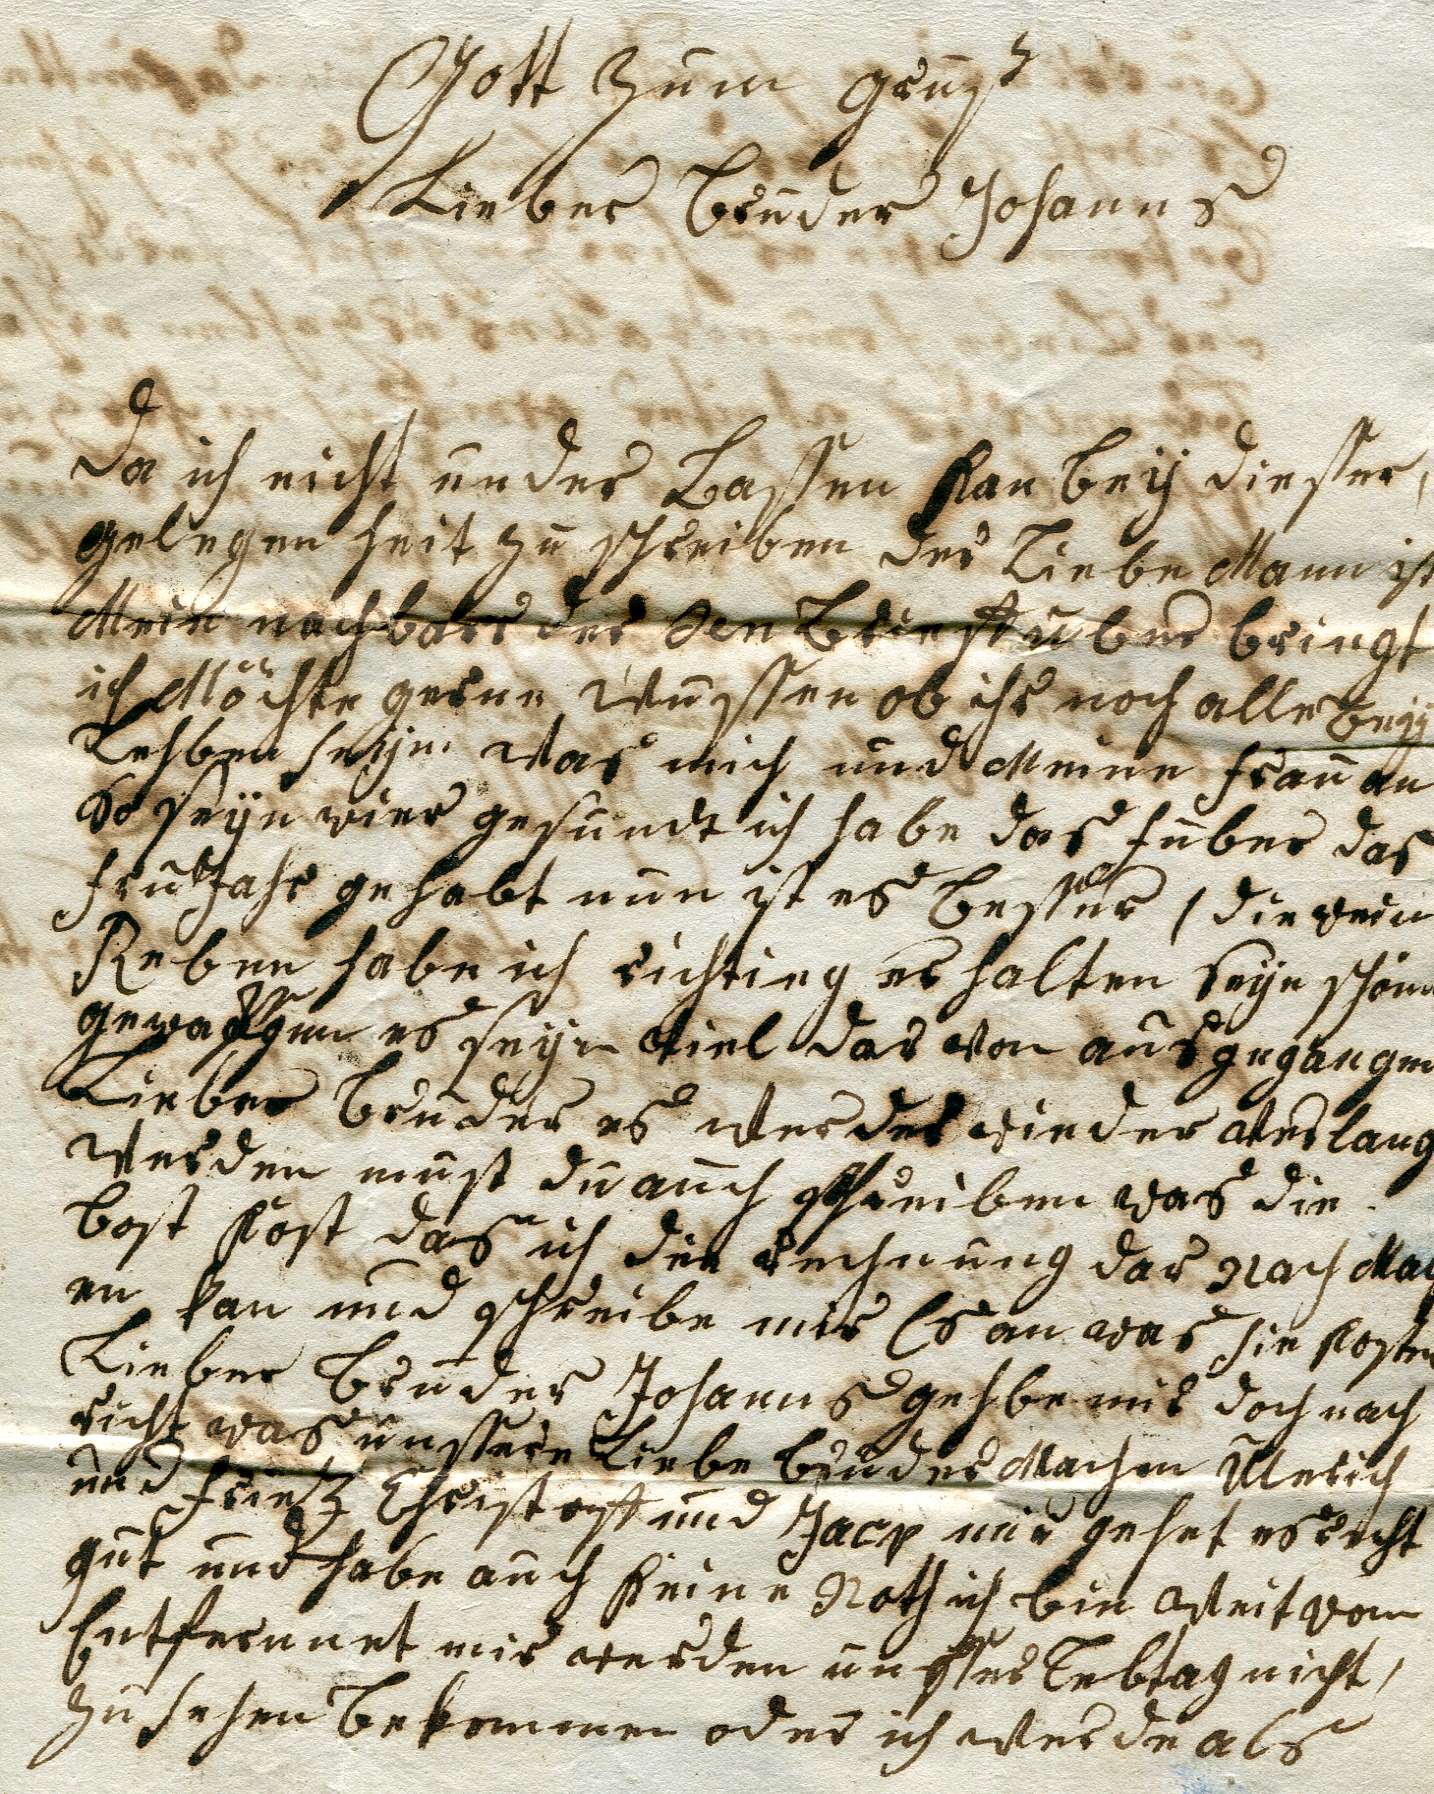 Gott zum gruß
Lieber Bruder Johannes
Da ich nicht under Lassen kan bey diesser,
gelegen heit zu schreiben der Liebe Mann ist
Mein nachbarr der den Brieff über bringt
ich Möchte gerne wüssen ob ihr noch alle bey
Lehben seyn was mich und Meine frau an
So seyn wier gesundt ich habe das fieber das
früh Jahr gehabt nun ist es besser / die wein
Reben habe ich richtieg er halten seyn schön
gewachsen es seyn viel dar von ausgegangen
Lieber Bruder es werden wieder verlang
werden must du auch schreiben was die
bost kost das ich die rechnung dar Nach Mach
en kan und schreibe mir Es an was sie kosten
Lieber Bruder Johannes gehbe mir doch nach
richt was unssere Liebe Brüder Machen Ullerich
und frietz Christoff und Jacp mir gehet es recht
gut und habe auch keine Noth ich bin weit von
Entfernnet mir werden unsser Lebtag nicht,
zu sehen bekommen oder ich werde als